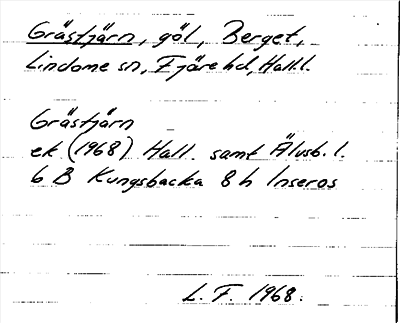 Grästjärn, göl, Berget,
Lindome sn, Fjäre hd, Hall.l.
Grästjärn
ek (1968) Hall. samt Älvsb. l.
6 B Kungsbacka 8 h Inseros
L. F. 1968.